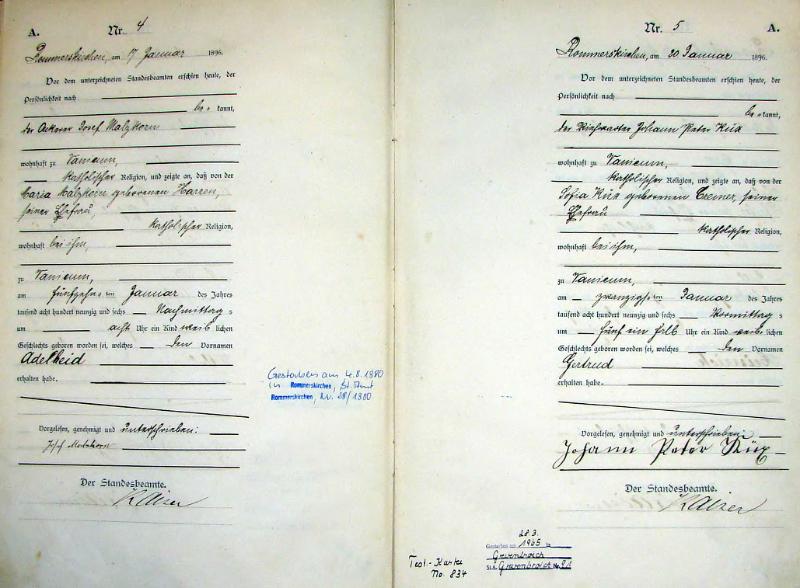 A.
Nr. 4
Rommerskirchen, am 17 Januar 1896.
Vor dem unterzeichneten Standesbeamten erschien heute, der
Persönlichkeit nach
be kannt,
der Ackerer Josef Malzkorn
wohnhaft zu Vanicum,
katholischer Religion, und zeigte an, daß von der
Maria Malzkorn geborenen Harren,
seiner Ehefrau
katholischer Religion,
wohnhaft bei ihm,
zu Vanicum,
am fünfzehn ten Januar des Jahres
tausend acht hundert neunzig und sechs Nachmittag s
um acht Uhr ein Kind weib lichen
Geschlechts geboren worden sei, welches den Vornamen
Adelheid
erhalten habe.
Vorgelesen, genehmigt und unterschrieben:
Josef Malzkorn
Der Standesbeamte.
Kaiser
Gestorben am 4.8.1980
in Rommerskirchen, St. Amt
Rommerskirchen, Nr. 28/1980
Nr. 5
A.
Rommerskirchen, am 20 Januar 1896.
Vor dem unterzeichneten Standesbeamten erschien heute, der
Persönlichkeit nach
be kannt,
der Johann Peter Küx
wohnhaft zu Vanicum,
katholischer Religion, und zeigte an, daß von der
Sofia Küx geborenen Cremer, seiner
Ehefrau
katholischer Religion,
wohnhaft bei ihm,
zu Vanicum,
am zwanzigs ten Januar des Jahres
tausend acht hundert neunzig und sechs Vormittag s
um fünf ein halb Uhr ein Kind weib lichen
Geschlechts geboren worden sei, welches den Vornamen
Gertrud
erhalten habe.
Vorgelesen, genehmigt und unterschrieben:
Johann Peter Küx
Der Standesbeamte.
Kaiser
28.3.
Gestorben am 1965 in
Grevenbroich
St.A. Grevenbroich Nr.
Test-Karte
No. 834